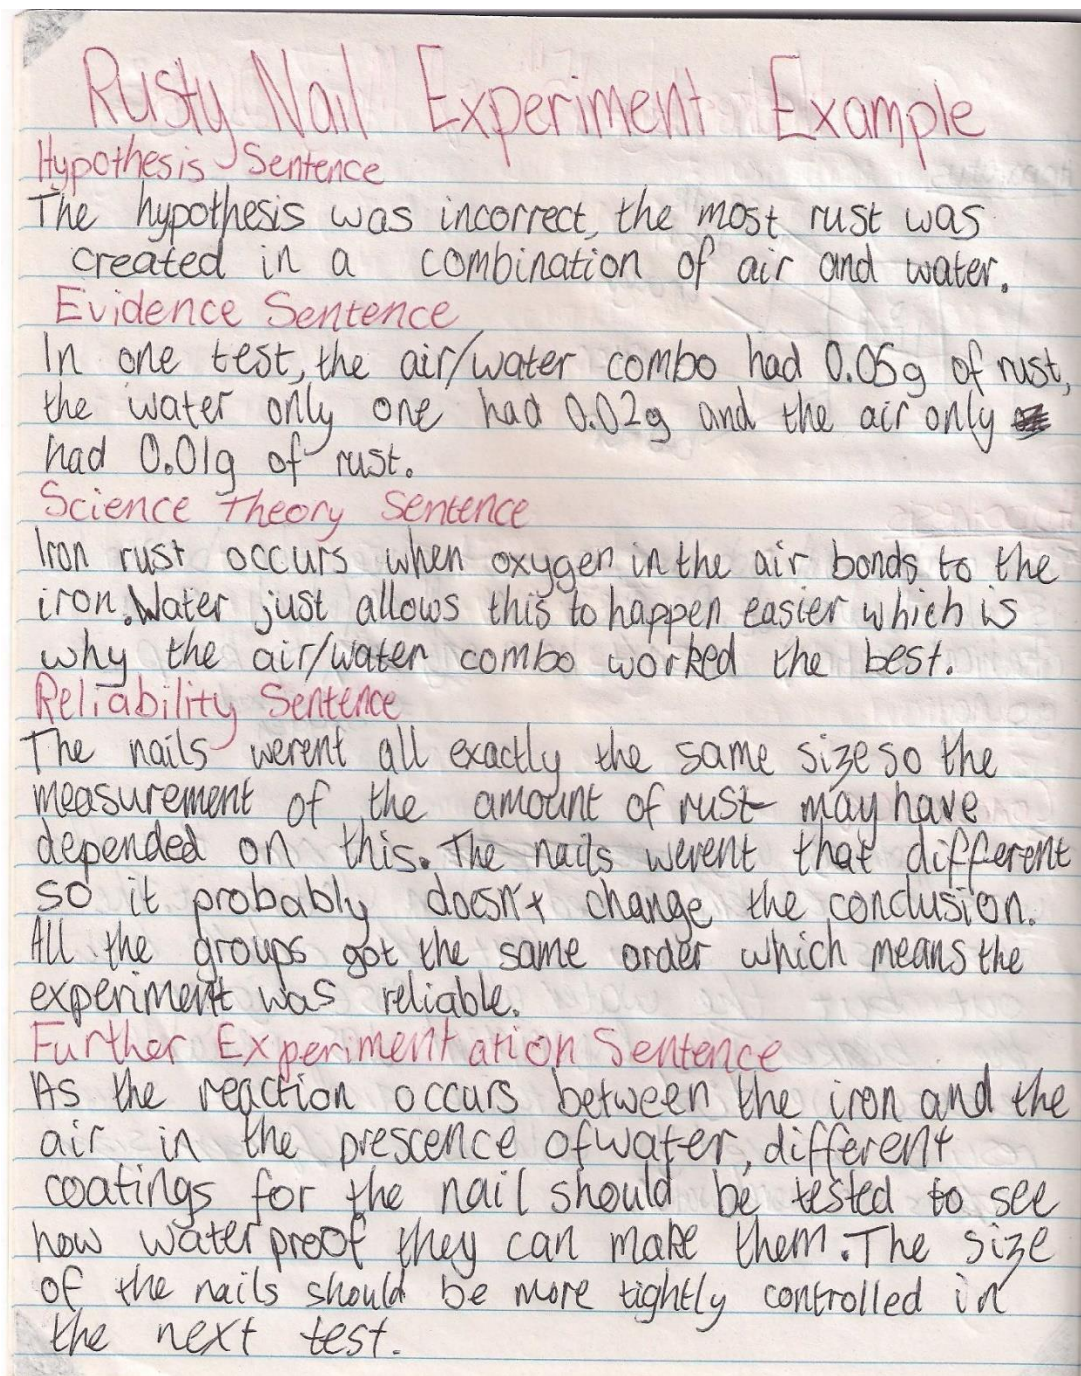 Rusty Nail Experiment Example
Hypothesis Sentence
The hypothesis was incorrect, the most rust was
created in a combination of air and water.
Evidence Sentence
In one test, the air/water combo had 0.05g of rust,
the water only one had 0.02g and the air only
had 0.01g of rust.
Science Theory Sentence
Iron rust occurs when oxygen in the air bonds to the
iron. Water just allows this to happen easier which is
why the air/water combo worked the best.
Reliability Sentence
The nails werent all exactly the same size so the
measurement of the amount of rust may have
depended on this. The nails werent that different
so it probably doesn't change the conclusion.
All the groups got the same order which means the
experiment was reliable.
Further Experimentation Sentence
As the reaction occurs between the iron and the
air in the prescence of water, different
coatings for the nail should be tested to see
how waterproof they can make them. The size
of the nails should be more tightly controlled in
the next test.